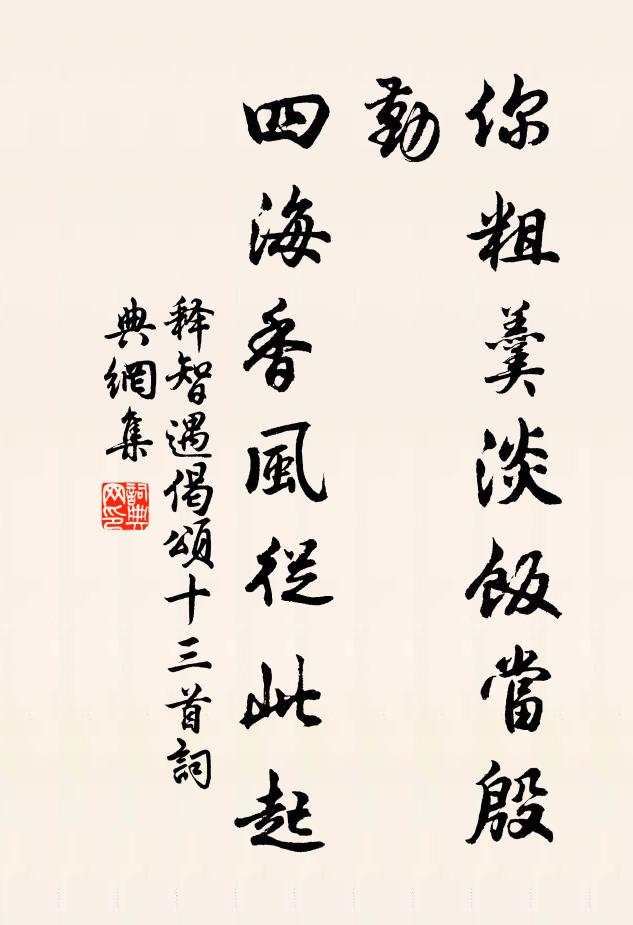 你粗羹淡飯當殷
勤
四海香風從此起
释智遇偈頌十三首詞
典網集
詞典
网印